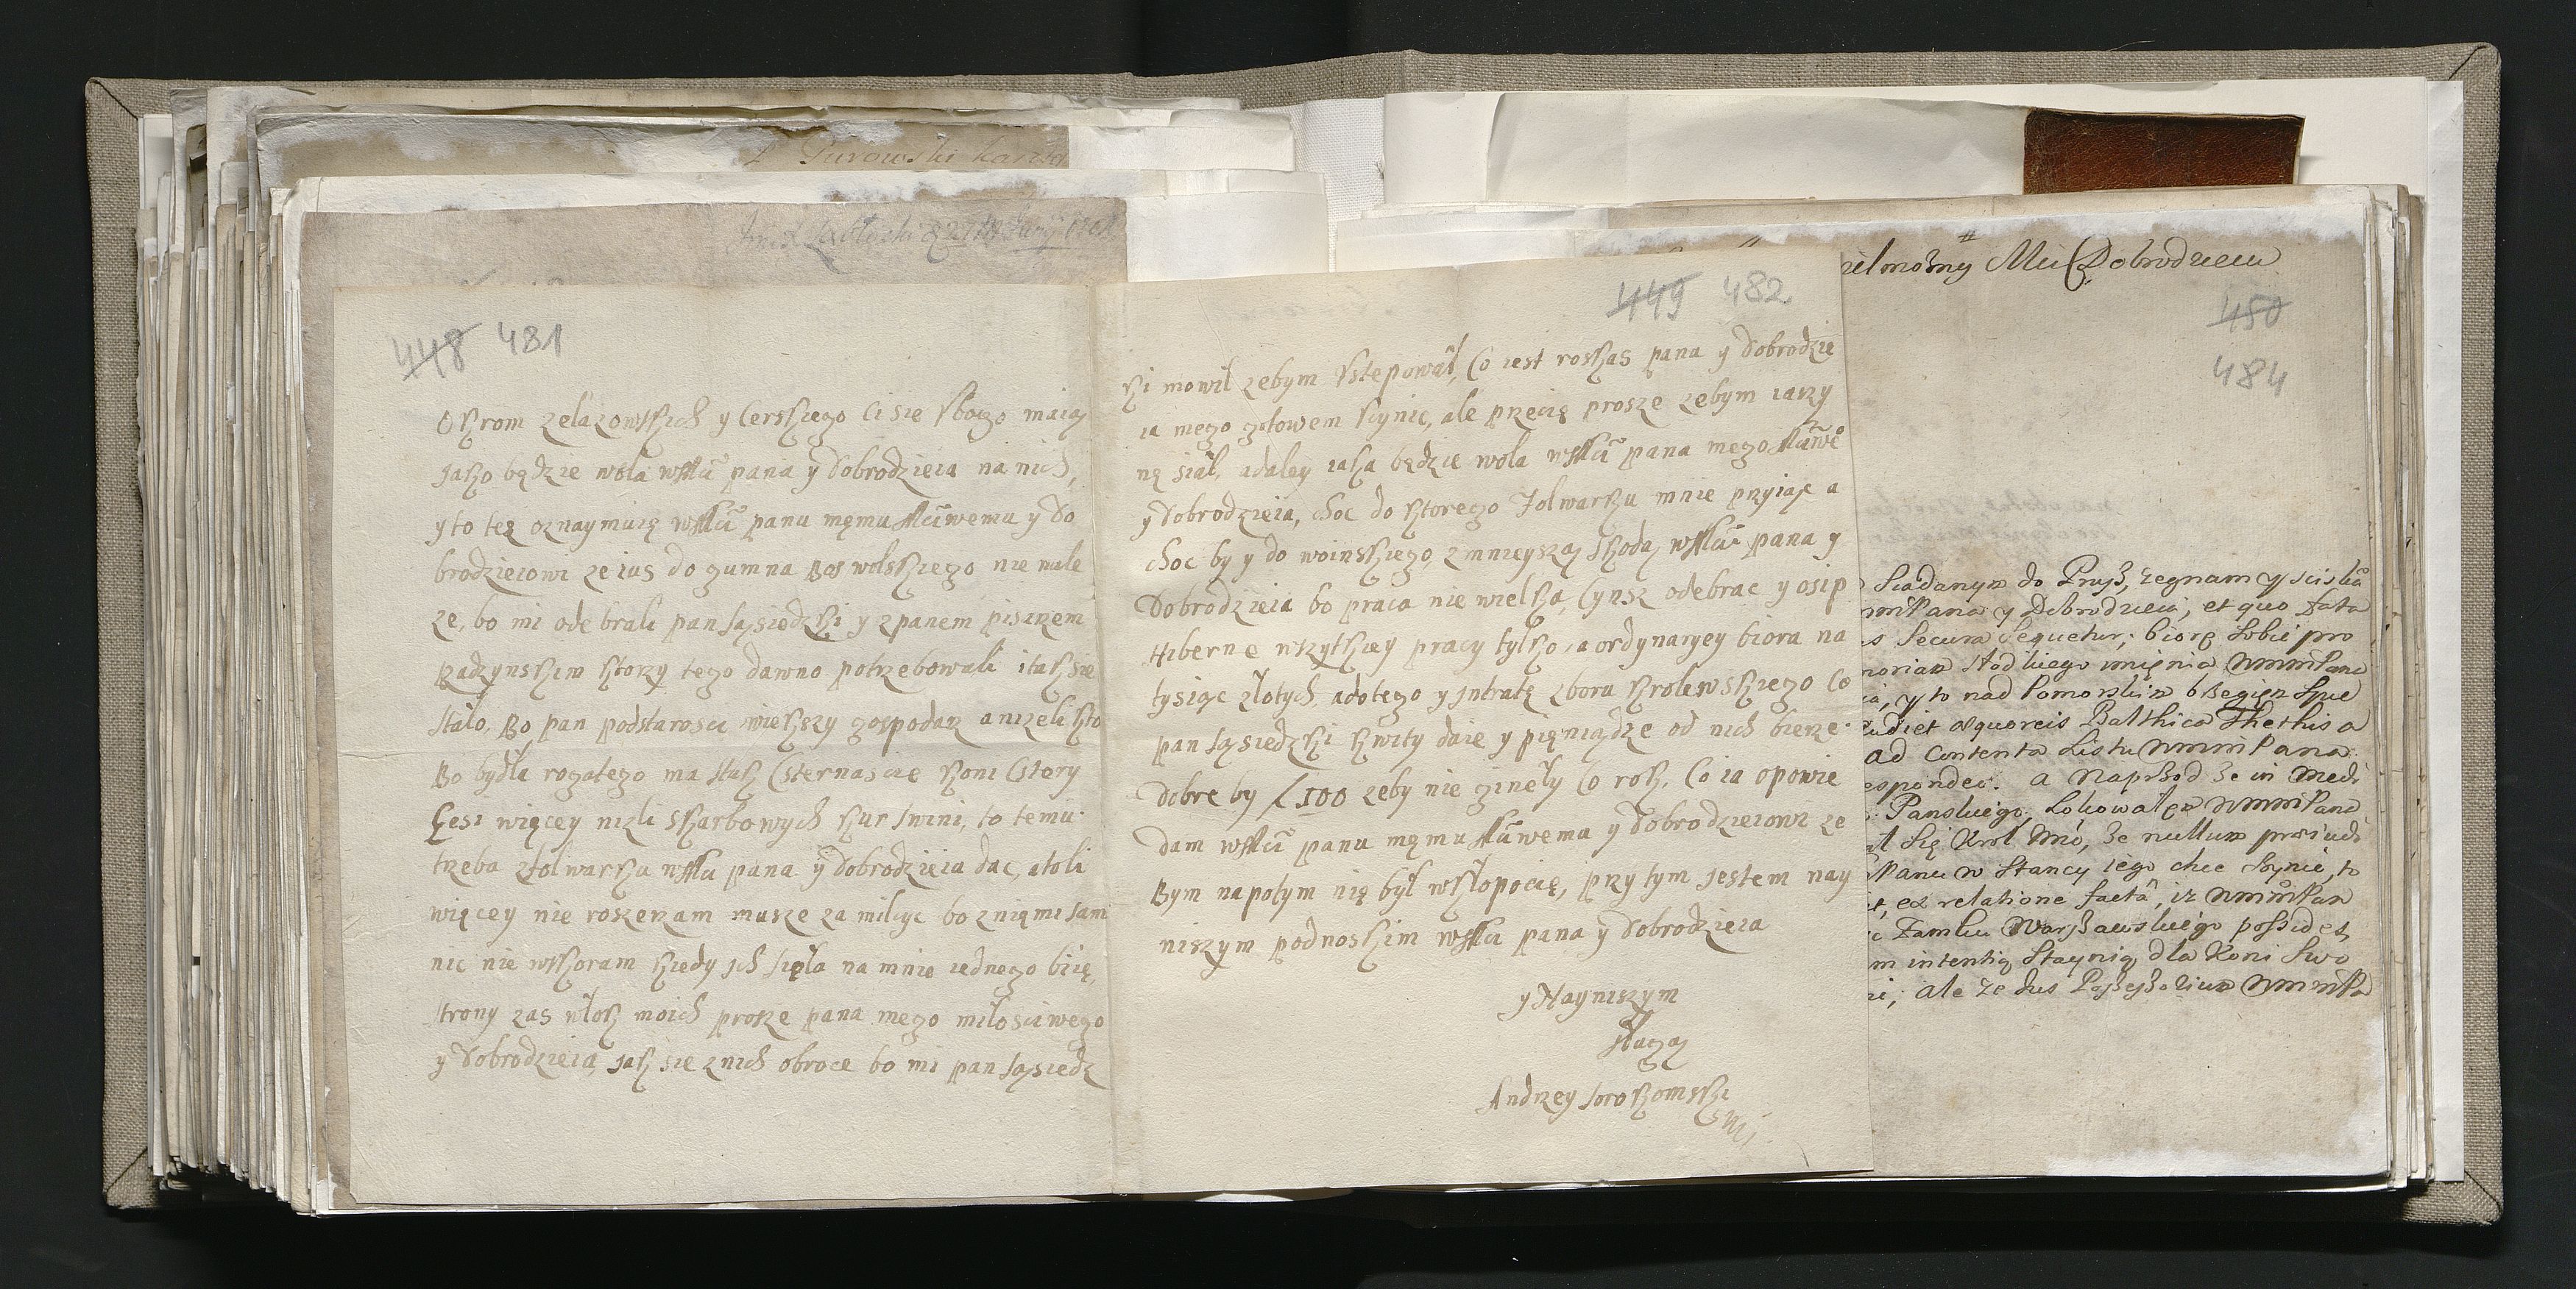 P Purowski
448 481
Okrom zelazowskich y Cerskiego Ci sie sbogo maią
Jako będzie wola wMM pana y Dobrodzieia na nich,
y to tez oznaymuię wMM panu męmu MMwemu y Do
brodzieiowi ze ius do gumna Boswolskiego nie nale
ze, bo mi odebrali pan Sąsiedzki y zpanem pisarzem
Radzynskim ktory tego dawno potrzebowali i tak sie
Stało. Bo pan podstarosci wiekszy gospodarz anizeli kto
Bo bydła rogatego ma sztuk Csternascie koni Cstery
Gesi więcey nizli skarbowych kur swini, to temu
trzeba zfolwarku wMM pana y Dobrodzieia dac, atoli
więcey nie roszerzam musze zamilcyc bo znięmi sam
nic nie wskoram kiedy ich siela na mnie iednego biię,
strony zas włok moich prosze pana mego miłosciwego
y Dobrodzieia, jak sie znich obroce bo mi pan Sąsiedz
449 482
ki mowił zebym Vstepował, Co iest roskas pana y Dobrodzie
ia mego gotowem Vcynic, ale przecię prosze zebym iarzy
nę siał, adaley iaka będzie wola wMM pana mego MMwe
y Dobrodzieia, choc do ktorego folwarku mnie przyiąc a
choc by y do woinskiego, zmnieyszą skodą wMM pana y
Dobrodzieia bo praca nie wielka, Cynsz odebrac y osip
Hiberne wszytkiey pracy tylko, a ordynaryey biora na
tysiąc złotych, adotego y intratę zboru krolewskiego Co
pan Sąsiedzki kwity daie y pięniądze od nich bierze.
Dobre by f 100 zeby nie gineły Co rok, Co ia opowie
dam wMM panu męmu MMwemu y Dobrodzieiowi ze
Bym napotym nię był wkłopocię, przy tym jestem nay
niszym podnoskim wMM pana y Dobrodzieia
y Nayniszym
Slugą
Andrzey Sorokomski
mp
ielmozny Mci Dobrodzieiu
450
484
Siadanym do Prusz, zegnam y sciska
Pana y Dobrodzieia, et quo fata
Secura sequetur; biorę sobie pro
słodkiego imięnia
y to nad Pomorskim brzegięm
æquoreis Balthica Thethis a
ad Contenta Listu
a Naprzod ze in
Panskiego,
się Krol Mc, ze nullum præiudi
Panu w Stancy iego chce
ex relatione facta, iz
Zamku Warszawskiego possidet,
intentią Staynią dla Koni Swo
ale ze Ius